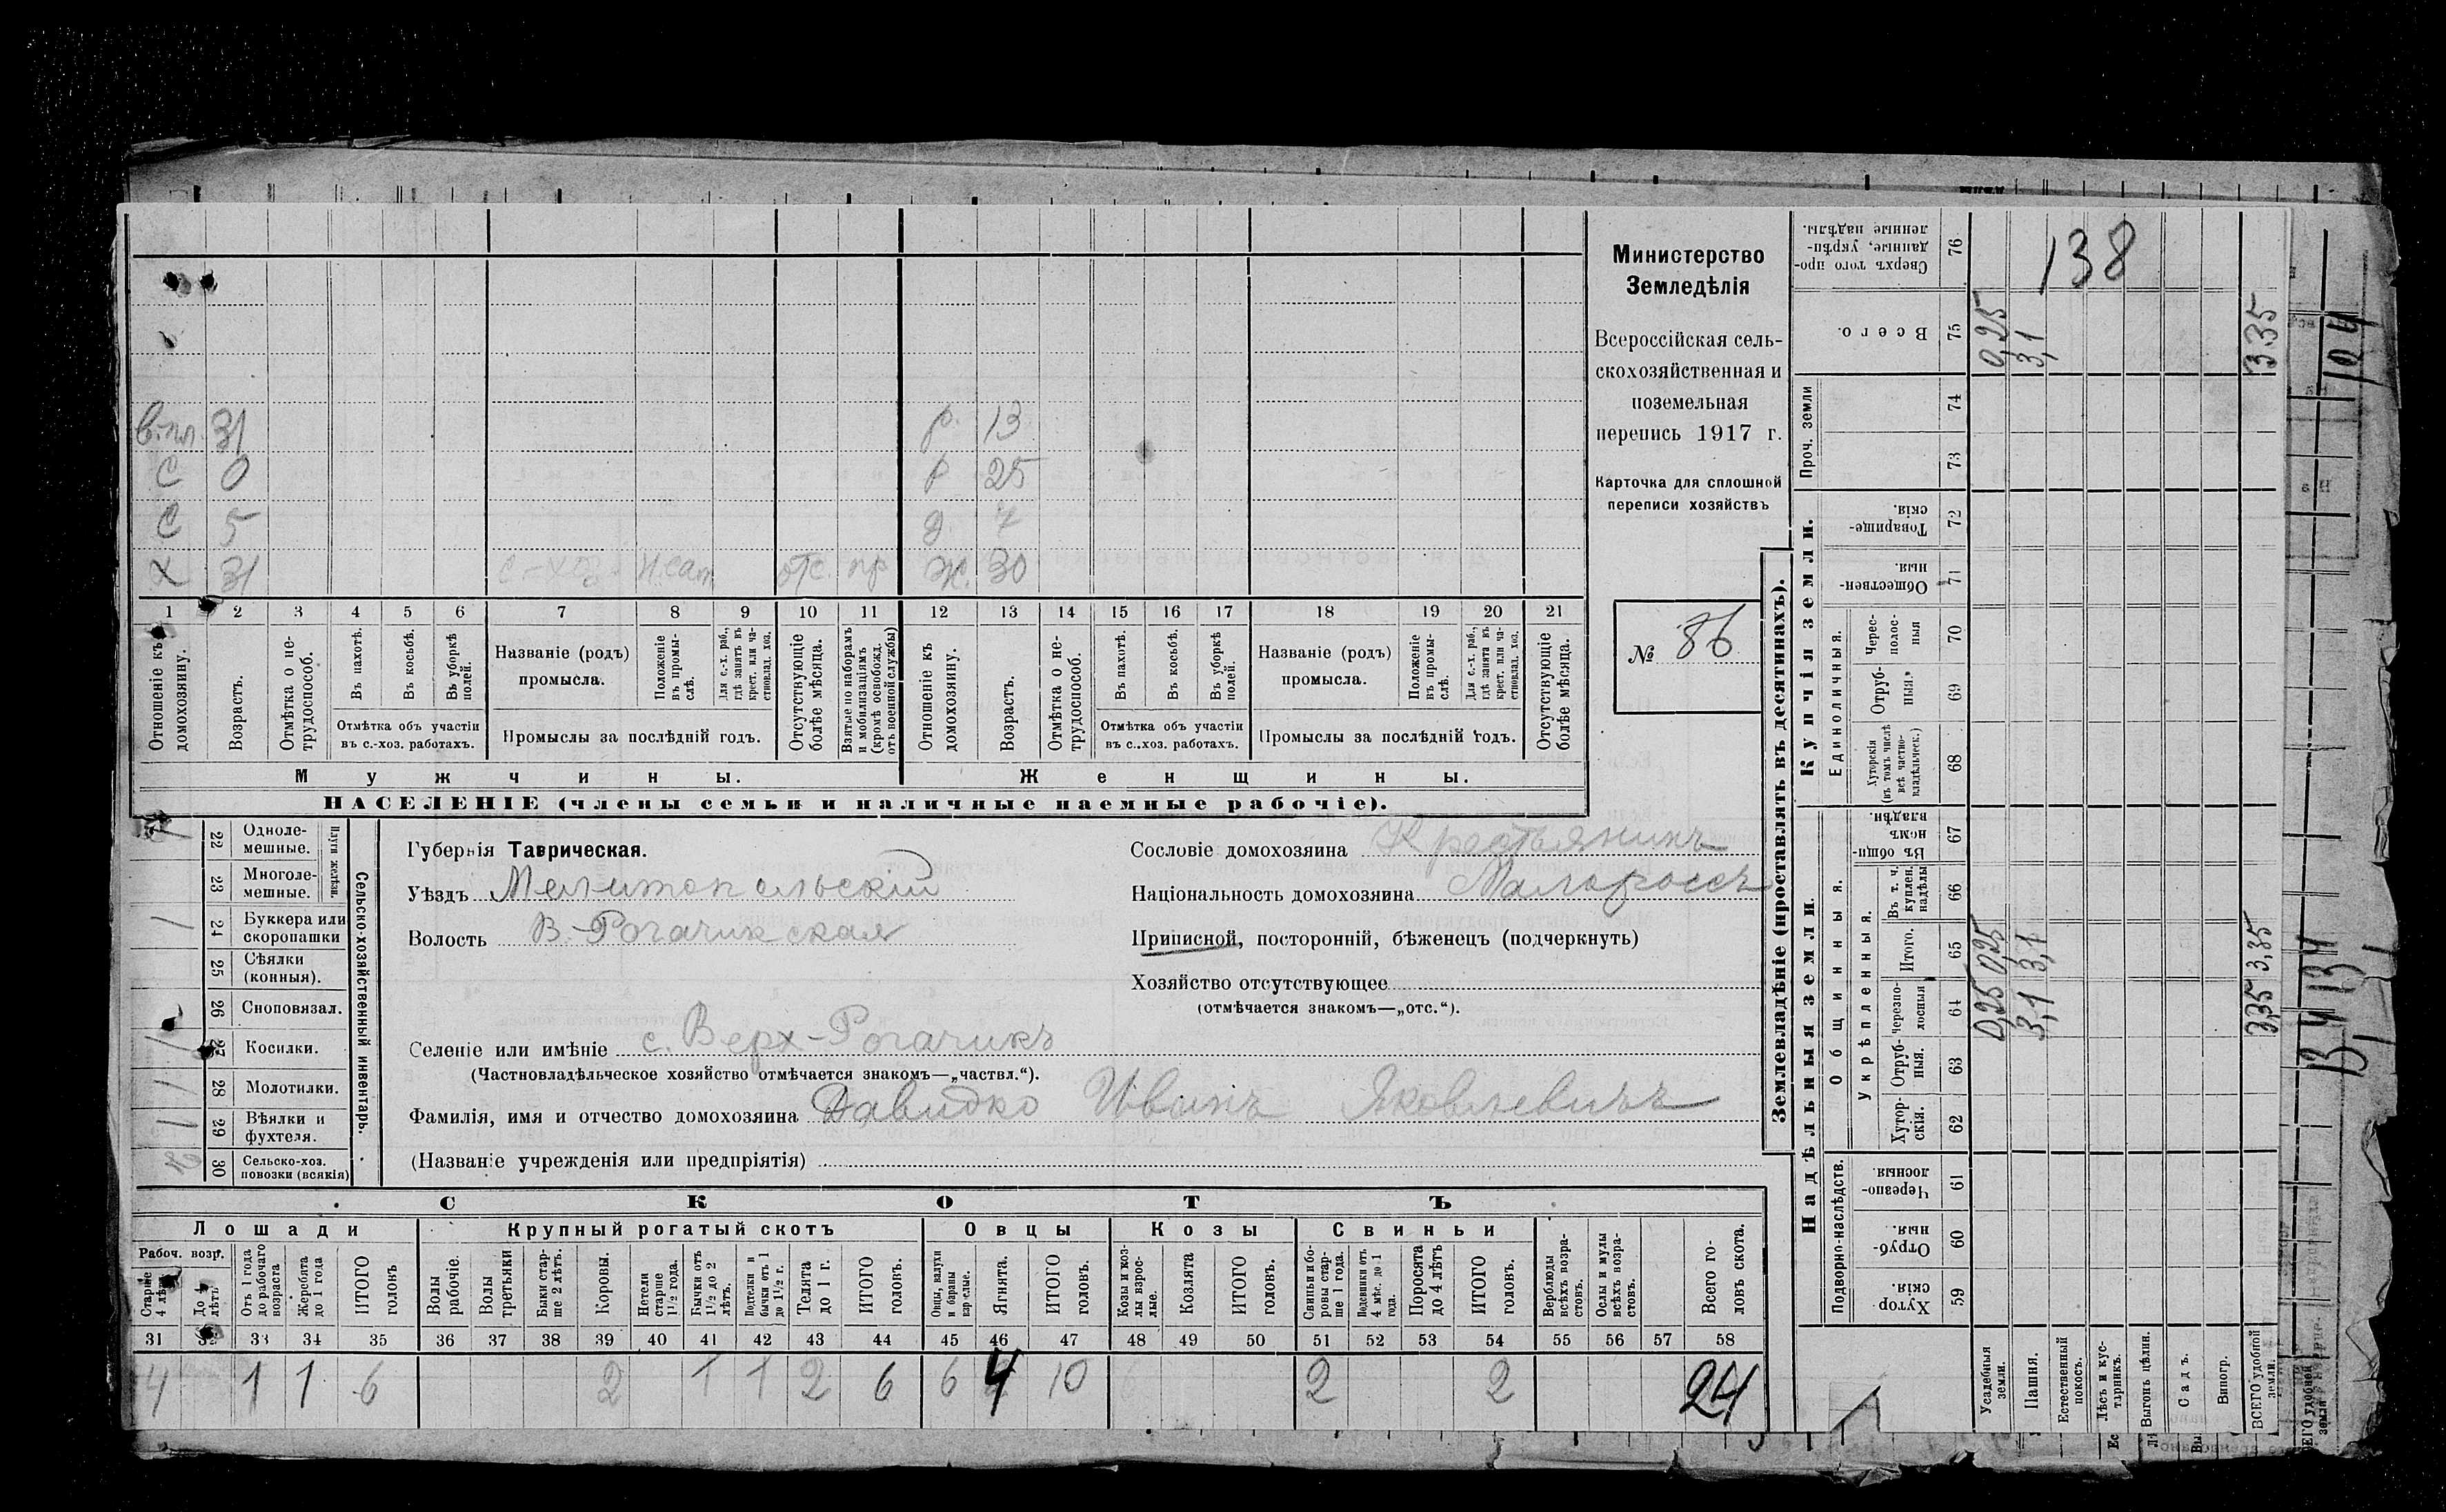 в.пл. 31 р. 13
С 0 р 25
С 5 д. 7
Х 31 с-хоз. Н.сат отс. пр Ж. 30
1 2 3 4 5 6 7 8 9 10 11 12 13 14 15 16 17 18 19 20 21
Отношеніе къ домохозяину.
Возрастъ.
Отмѣтка о не-трудоспособ.
Въ пахотѣ.
Въ косьбѣ.
Въ уборкѣ полей.
Отмѣтка объ участіи
въ с.-хоз. работахъ.
Названіе (родъ)
промысла.
Положеніе въ промы-слѣ.
Для с.-х. раб., гдѣ занятъ въ крест. или ча-стновлад. хоз.
Промыслы за послѣдній годъ.
Отсутствующіе болѣе мѣсяца.
Взятые по наборамъ и мобилизаціямъ (кромѣ освобожд. отъ военной службы)
Отношеніе къ домохозяину.
Возрастъ.
Отмѣтка о не-трудоспособ.
Въ пахотѣ.
Въ косьбѣ.
Въ уборкѣ полей.
Отмѣтка объ участіи
въ с..хоз. работахъ.
Названіе (родъ)
промысла.
Положеніе въ промы-слѣ.
Для с.-х. раб., гдѣ занята въ крест. или ча-стновлад. хоз.
Промыслы за послѣдній годъ.
Отсутствующіе болѣе мѣсяца.
Мужчины. Женщины.
НАСЕЛЕНІЕ (члены семьи и наличные наемные рабочіе).
Министерство
Земледѣлія
Всероссійская сель-
скохозяйственная и
поземельная
перепись 1917 г.
Карточка для сплошной
переписи хозяйствъ
№ 86
Плуги желѣзн.
22 Одноле-мешные.
23 Многоле-мешные.
1 24 Буккера или скоропашки
25 Сѣялки (конныя).
26 Сноповязал.
1 27 Косилки.
1 28 Молотилки.
1 29 Вѣялки и фухтеля.
2 30 Сельско-хоз. повозки (всякія)
Сельско-хозяйственный инвентарь.
Губернія Таврическая.
Уѣздъ Мелитопольскій
Волость В.-Рогачикская
Сословіе домохозяина Крестьянинъ
Національность домохозяина Малороссъ
Приписной, посторонній, бѣженецъ (подчеркнуть)
Хозяйство отсутствующее
(отмѣчается знакомъ—„отс.“).
Селеніе или имѣніе с. Верх-Рогачикъ
(Частновладѣльческое хозяйство отмѣчается знакомъ—„частвл.“).
Фамилія, имя и отчество домохозяина Давидко Иванъ Яковлевичъ
(Названіе учрежденія или предпріятія)
СКОТЪ
Лошади Крупный рогатый скотъ Овцы Козы Свиньи
Рабоч. возр.
Старше 4 лѣтъ
До 4 лѣтъ
Отъ 1 года до рабочаго возраста
Жеребята до 1 года
ИТОГО головъ
Волы рабочіе.
Волы третьяки
Быки стар-ше 2 лѣтъ.
Коровы.
Нетели старше 1½ года.
Бычки отъ 1½ до 2 лѣтъ.
Подтелки и бычки отъ 1 до 1½ г.
Телята до 1 г.
ИТОГО головъ.
Овцы, валухи и бараны взрослые.
Ягнята.
ИТОГО головъ.
Козы и коз-лы взрос-лые.
Козлята
ИТОГО головъ.
Свиньи и бо-ровы стар-ше 1 года.
Подсвинки отъ 4 мѣс. до 1 года.
Поросята до 4 лѣтъ
ИТОГО головъ.
Верблюды всѣхъ возра-стовъ.
Ослы и мулы всѣхъ возра-стовъ.
Всего го-ловъ скота.
31 32 33 34 35 36 37 38 39 40 41 42 43 44 45 46 47 48 49 50 51 52 53 54 55 56 57 58
4 1 1 6 2 1 1 2 6 6 4 10 2 2 24
Землевладѣніе (проставлять въ десятинахъ).
Надѣльныя земли. Купчія земли. Проч. земли
Подворно-наслѣдств. Общинныя. Единоличныя.
Укрѣпленныя.
59 Хутор-скія.
60 Отруб-ныя.
61 Черезпо-лосныя
62 Хутор-скія.
63 Отруб-ныя.
64 Черезпо-лосныя
65 Итого.
66 Въ т. ч. куплен. надѣлы
67 Въ общи-номъ владѣн.
68 Хуторскія (въ томъ числѣ всѣ частно-владѣльческ.)
69 Отруб-ныя.
70 Черес-полос-ныя
71 Обществен-ныя.
72 Товарище-скія.
73
74
75 Всего.
76 Сверхъ того про-данные, укрѣп-ленные надѣлы.
138
Усадебныя земли. 0,25 0,25 0,25
Пашня. 3,1 3,1 3,1
Естественный покосъ.
Лѣсъ и кус-тарникъ.
Выгонъ цѣлин.
Садъ.
Виногр.
ВСЕГО удобной земли. 3,35 3,35 3.35
104
134 134